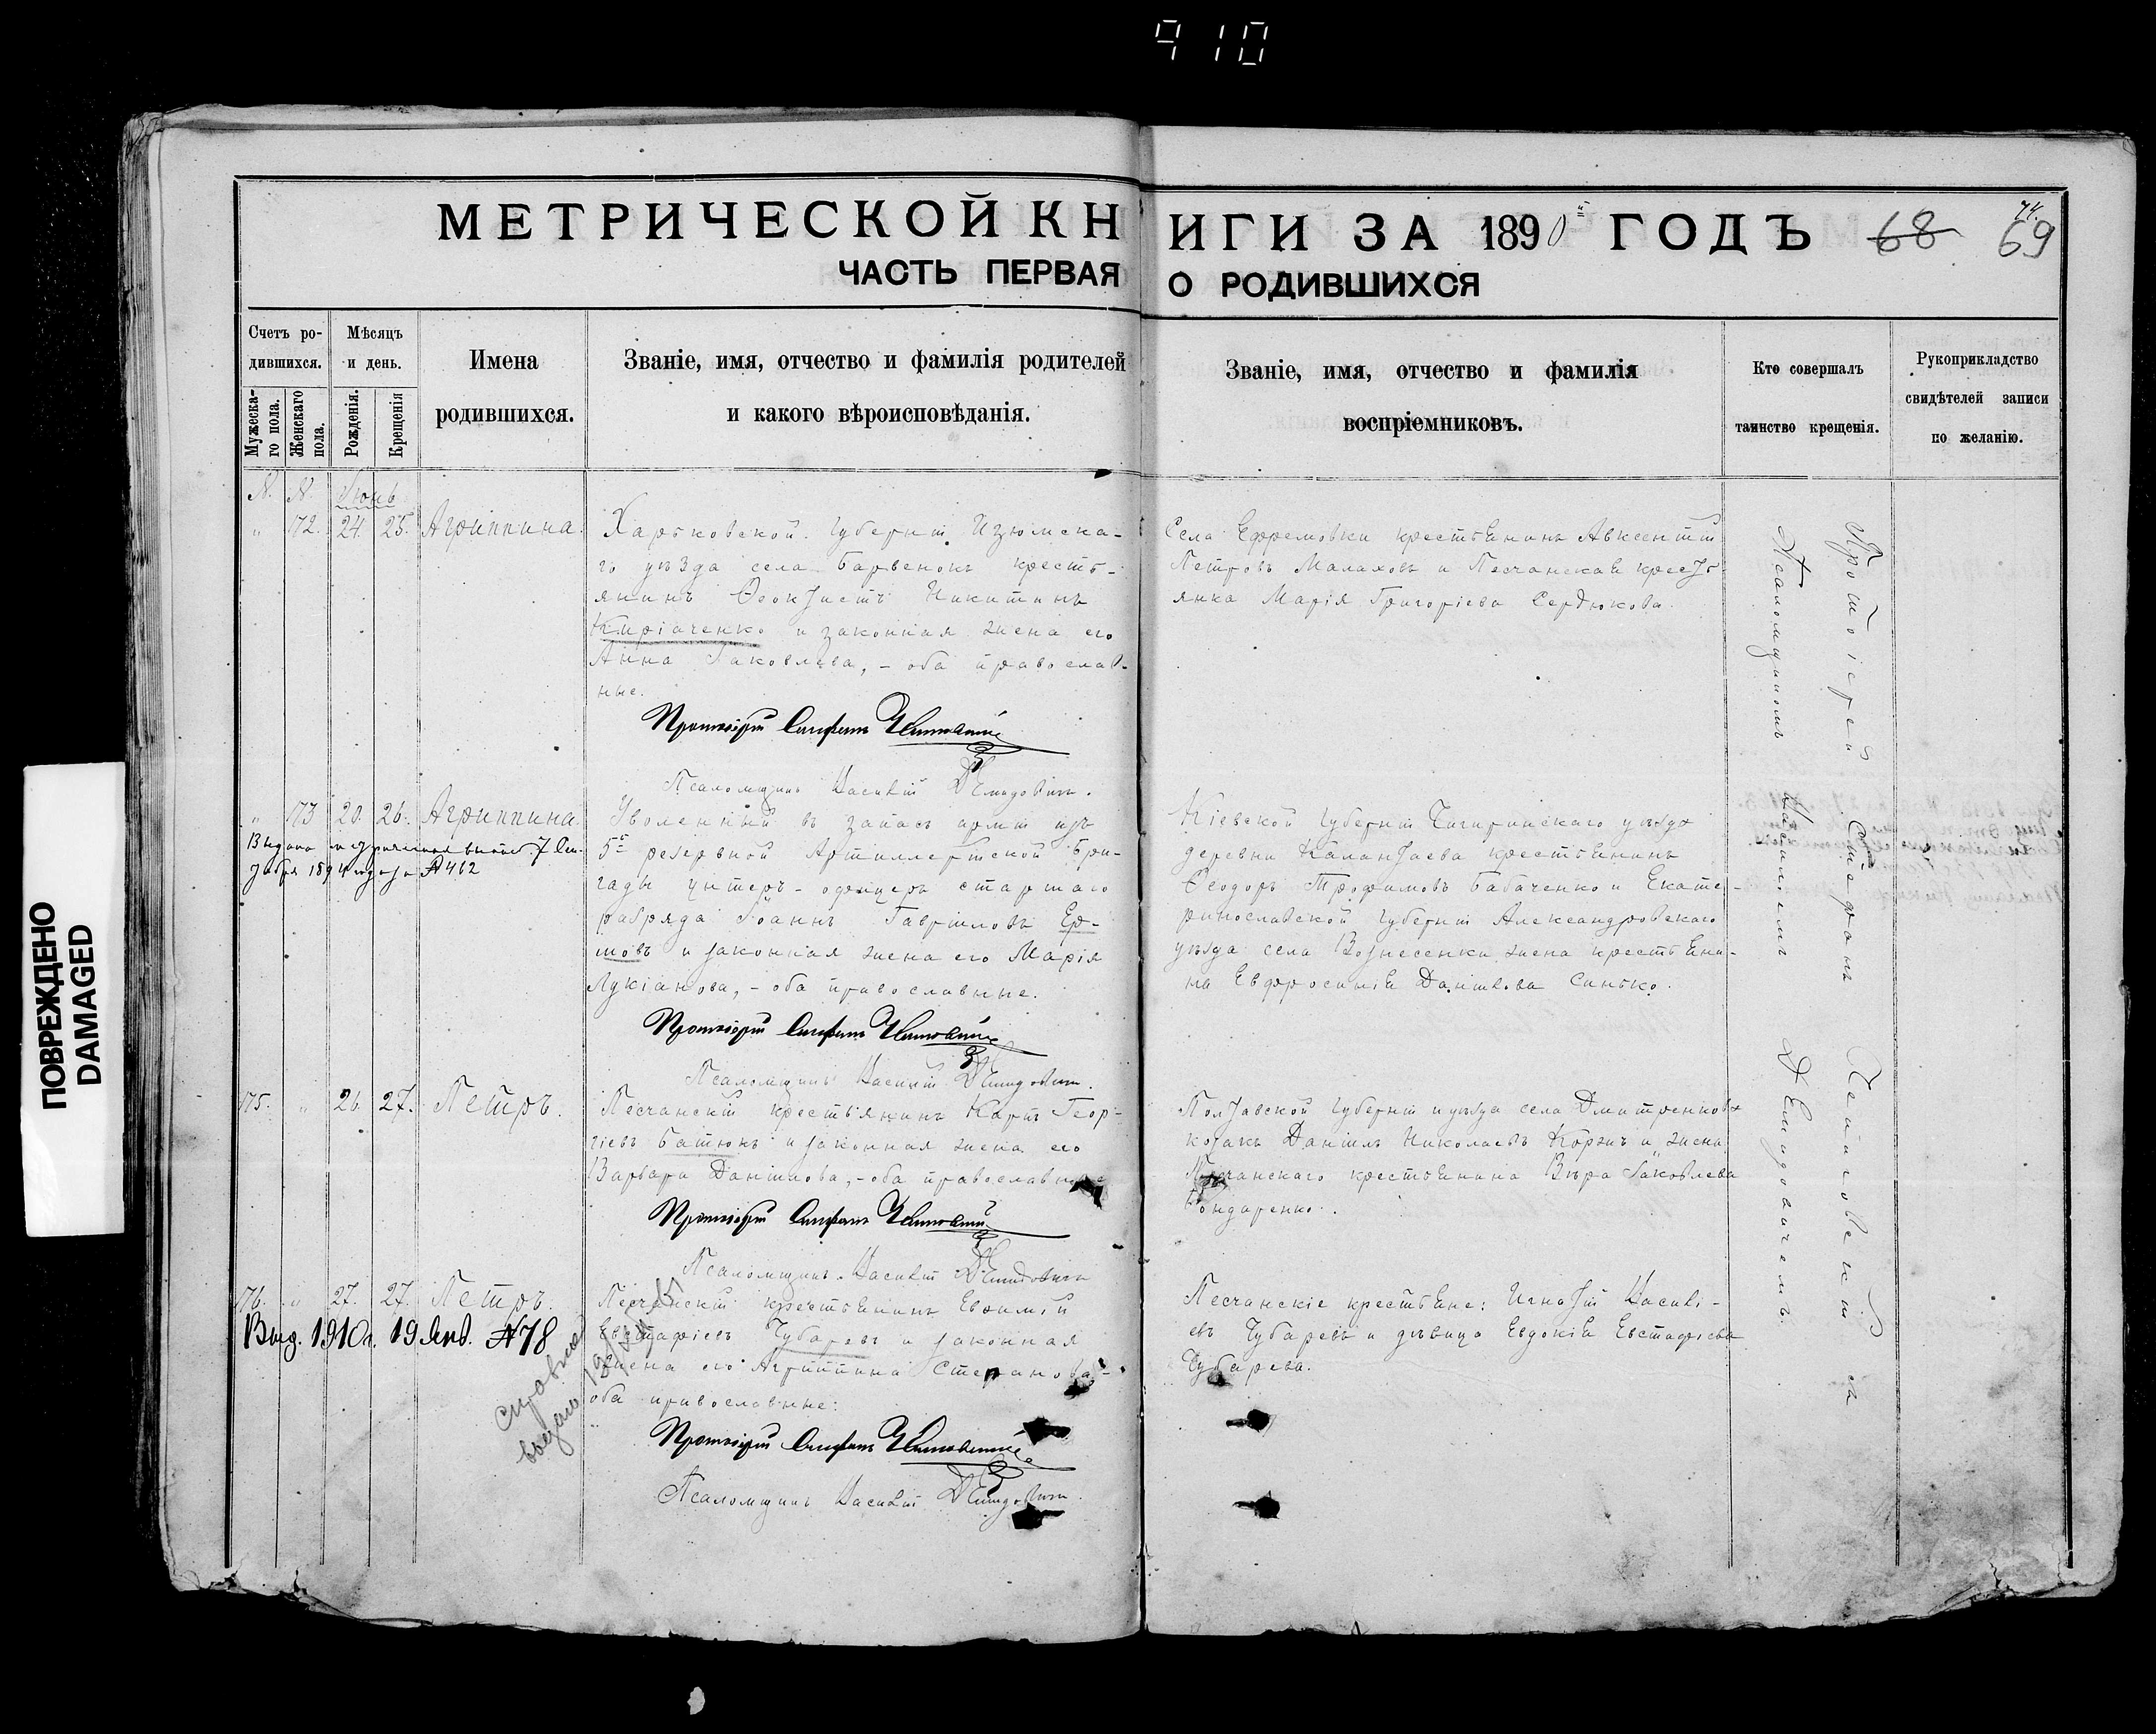 910
МЕТРИЧЕСКОЙ КНИГИ ЗА 1890й ГОДЪ 68 69
74.
ЧАСТЬ ПЕРВАЯ О РОДИВШИХСЯ
Счетъ ро-
дившихся.
Мужеска-
го пола.
Женскаго
пола.
Мѣсяцъ
и день.
Рожденія.
Крещенія
Имена
родившихся.
Званіе, имя, отчество и фамилія родителей
и какого вѣроисповѣданія.
Званіе, имя, отчество и фамилія
воспріемниковъ.
Кто совершалъ
таинство крещенія.
Рукоприкладство
свидѣтелей записи
по желанію.
N. N. Іюнь
" 172. 24. 25. Агриппина.
Харьковской Губерніи Изюмска-
го уѣзда села Барвенокъ кресть-
янинъ Ѳеоктистъ Никитинъ
Киріаченко и законная жена его
Анна Іаковлева, - оба православ-
ные.
Протоіерей Стефанъ
Псаломщикъ Василій Демидовичъ.
Села Ефремовки крестьянинъ Авксентій
Петровъ Малаховъ и Песчанская кресть-
янка Марія Григоріева Сердюкова.
" 173 20. 26. Агриппина.
Выдана метрическая выпись 7 Сен-
тября 1894 года № 462
Уволенный въ запасъ арміи изъ
5й резервной Артиллерійской Бри-
гады унтеръ-офицеръ старшаго
разряда Іоаннъ Гавріиловъ Ер-
шовъ и законная жена его Марія
Лукіанова, - оба православные.
Протоіерей Стефанъ
Псаломщикъ Василій Демидовичъ.
Кіевской Губерніи Чигиринскаго уѣзда
деревни Калантаева крестьянинъ
Ѳеодоръ Трофимовъ Бабаченко и Екате-
ринославской Губерніи Александровскаго
уѣзда села Вознесенки жена крестьяни-
на Евфросинія Даніилова Синько.
175. " 26. 27. Петръ.
Песчанскій крестьянинъ Карпъ Геор-
гіевъ Батюкъ и законная жена его
Варвара Даніилова, - оба православные
Протоіерей Стефанъ
Псаломщикъ Василій Демидовичъ
Полтавской Губерніи и уѣзда села Дмитренковъ
козакъ Даніилъ Николаевъ Коржъ и жена
Песчанскаго крестьянина Вѣра Іаковлева
Бондаренко.
176. " 27. 27. Петръ.
Выд. 1910 г. 19 Янв. № 78
Справка
выдано
Песчанскій крестьянинъ Евѳимій
Евстафіевъ Чубаревъ и законная
жена его Агриппина Стефанова, -
оба православные:
Протоіерей Стефанъ
Псаломщикъ Василій Демидовичъ.
Песчанскіе крестьяне: Игнатій Василі-
евъ Чубаревъ и дѣвица Евдокія Евстафіева
Чубарева.
Протоіерей Стефанъ съ
Псаломщикомъ Василіемъ Демидовичемъ.
ПОВРЕЖДЕНО
DAMAGED